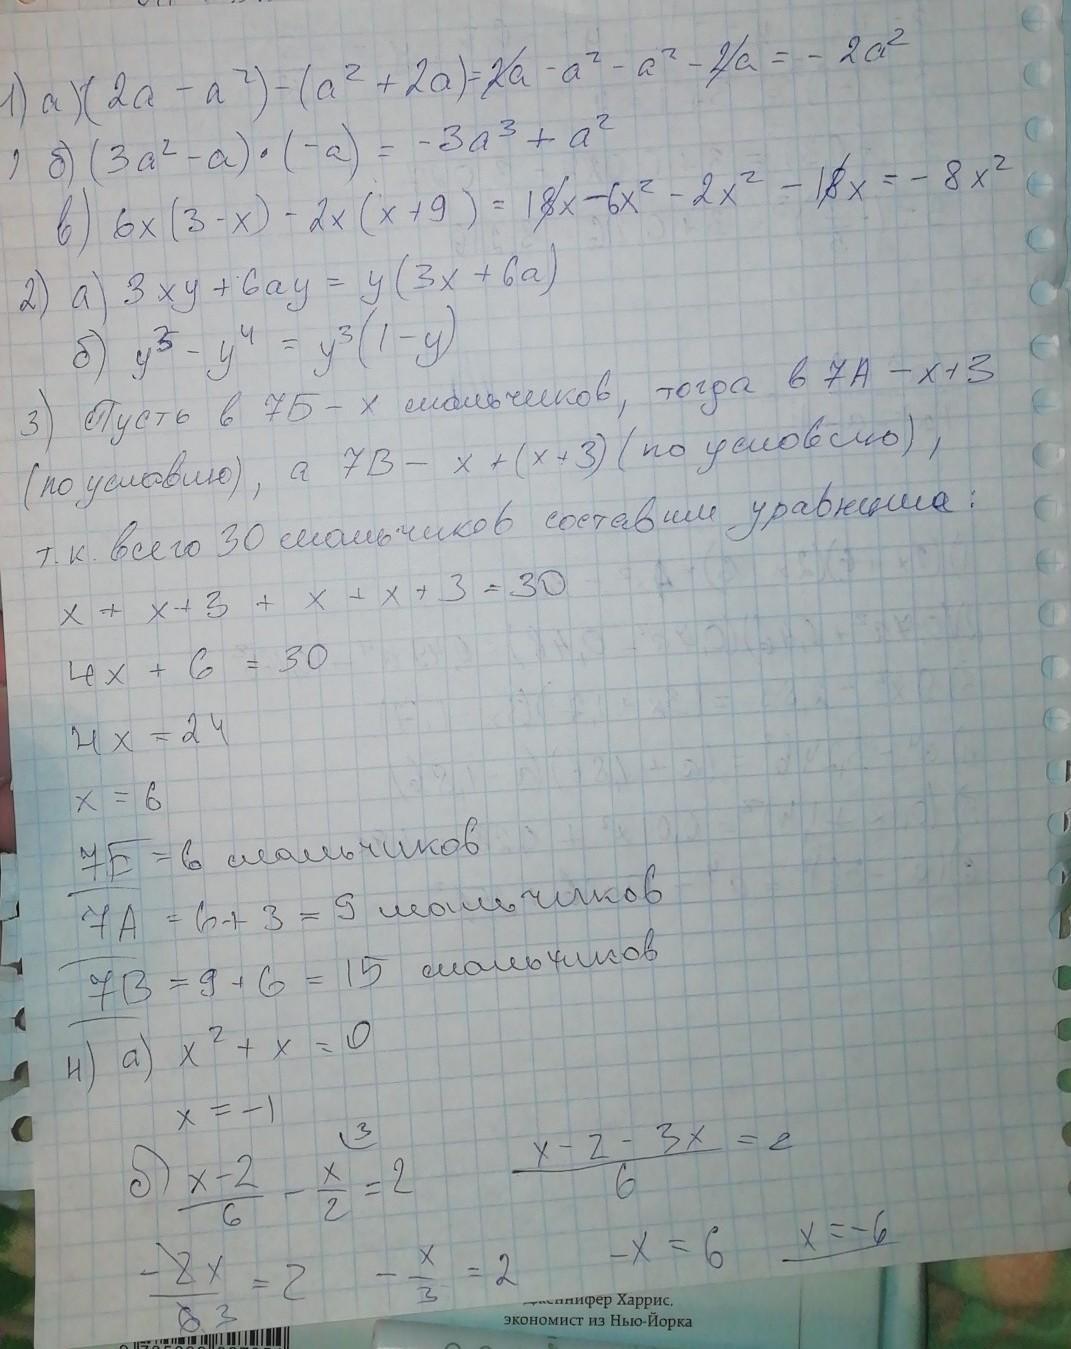 1) а) (2a - a²) - (a² + 2a) = 2a - a² - a² - 2a = - 2a²
б) (3a² - a) · (-a) = -3a³ + a²
в) 6x (3 - x) - 2x (x + 9) = 18x - 6x² - 2x² - 18x = - 8x²
2) а) 3xy + 6ay = y (3x + 6a)
б) y³ - y⁴ = y³ (1 - y)
3) Пусть в 7Б - x мальчиков, тогда в 7А - x+3
(по условию), а 7В - x + (x+3) (по условию),
т.к. всего 30 мальчиков составим уравнение:
x + x+3 + x + x + 3 = 30
4x + 6 = 30
4x = 24
x = 6
7Б = 6 мальчиков
7А = 6+3 = 9 мальчиков
7В = 9 + 6 = 15 мальчиков
4) а) x² + x = 0
x = -1
б) (x-2)/6 - x/2 = 2 (x - 2 - 3x)/6 = 2
3
-2x/6 3 = 2 - x/3 = 2 -x = 6 x = -6
Дженнифер Харрис,
экономист из Нью-Йорка